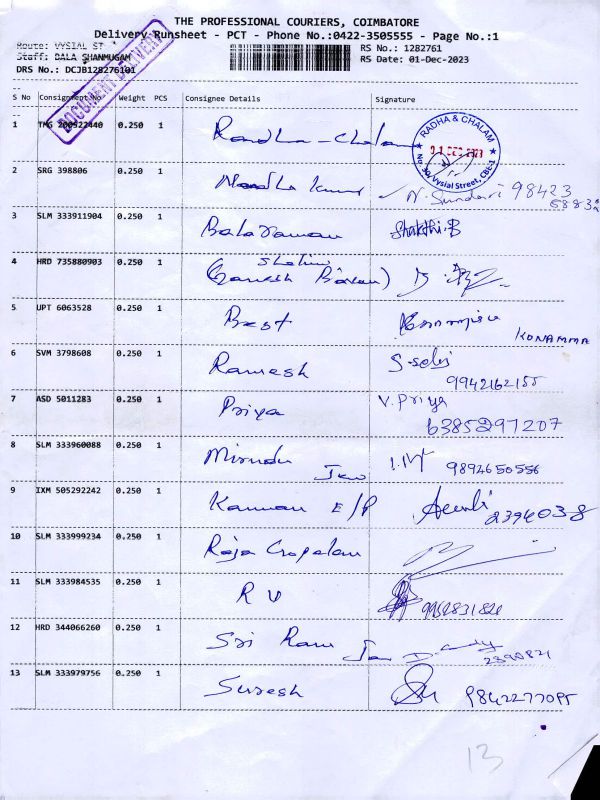 THE PROFESSIONAL COURIERS, COIMBATORE
Delivery Runsheet - PCT - Phone No.:0422-3505555 - Page No.:1
Route: VYSIAL ST
RS No.: 1282761
Staff: BALA SHANMUGAM
RS Date: 01-Dec-2023
DRS No.: DCJB128276101
DOCUMENT DELIVERY
S No Consignment No Weight PCS Consignee Details Signature
1 TMG 200522440 0.250 1 Radha-Chalam
RADHA & CHALAM
No. 30, Vysial Street, CBE-1
2 SRG 398806 0.250 1 Nandha Kumar N. Sundari 98423
3 SLM 333911904 0.250 1 Bala Raman Shakthi.B
4 HRD 735880903 0.250 1 Ganesh
5 UPT 6063528 0.250 1 Best
KONAMMA
6 SVM 3798608 0.250 1 Ramesh
9942162155
7 ASD 5011283 0.250 1 Priya V. Priya
6385297207
8 SLM 333960088 0.250 1 9894650556
9 IXM 505292242 0.250 1 Kannan E/P 2394038
10 SLM 333999234 0.250 1 Raja Gopalan
11 SLM 333984535 0.250 1 R V
12 HRD 344066260 0.250 1 Sri Ram
2390821
13 SLM 333979756 0.250 1 Suresh 9842277095
13